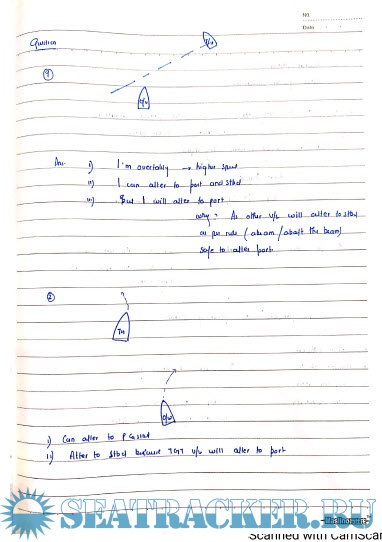 NO.
Date
Question
①
T/v
O/v
Ans. i) I'm overtaking → higher speed
ii) I can alter to port and stbd
iii) But I will alter to port
why : As other v/L will alter to stbd
as per rule (abeam / abaft the beam)
safe to alter port.
②
O/v
i) Can alter to P & stbd
ii) Alter to stbd because TGT v/L will alter to port
SEATRACKER.RU
Scanned with CamScan